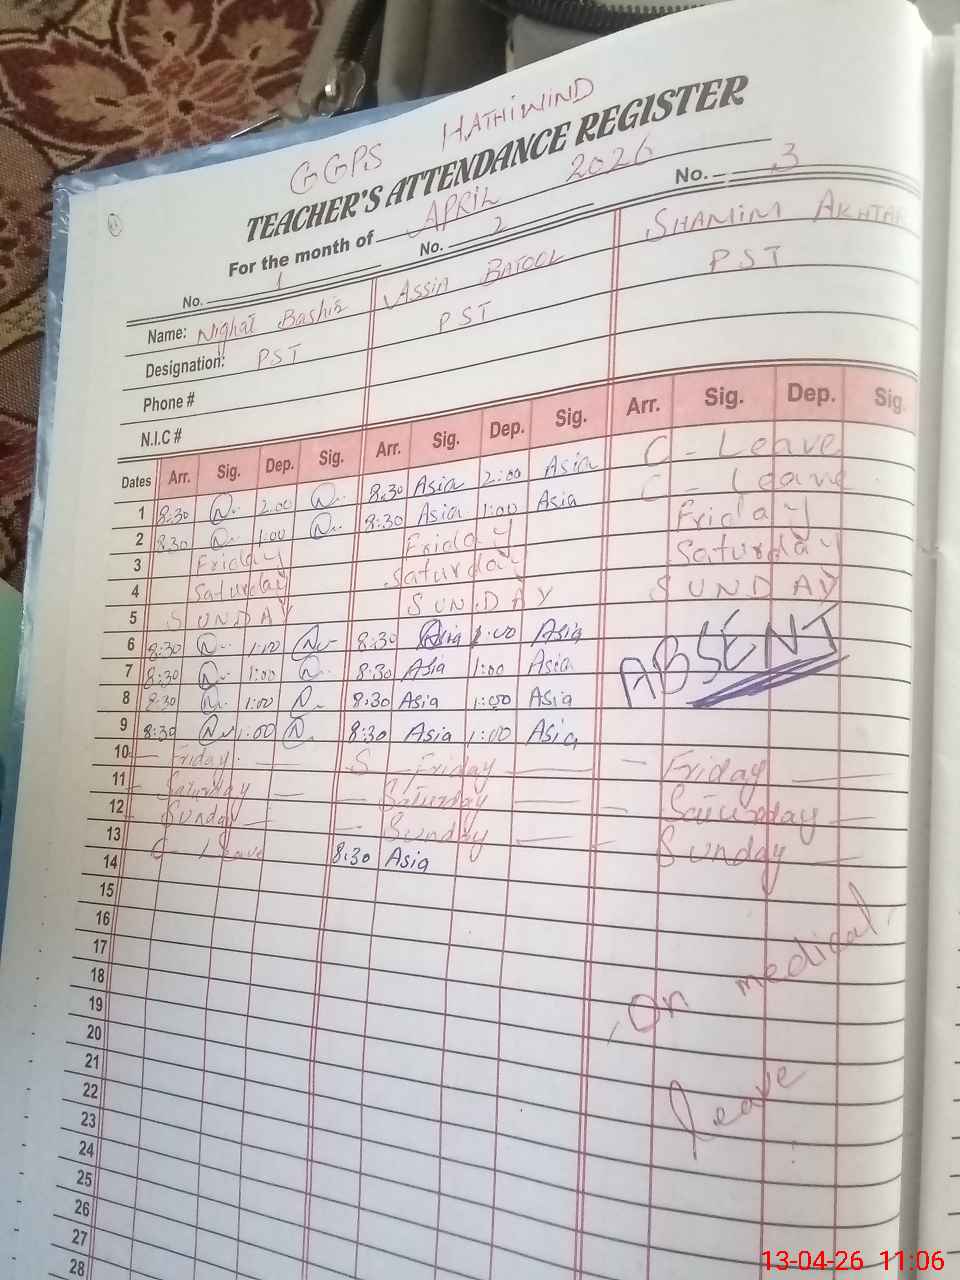 GGPS HATHIWIND
TEACHER'S ATTENDANCE REGISTER
For the month of APRIL 2026
No. 1 No. 2 No. 3
Name: Nighat Bashir Assia Batool SHAMIM AKHTAR
Designation: PST PST PST
Phone #
N.I.C #
Dates Arr. Sig. Dep. Sig. Arr. Sig. Dep. Sig. Arr. Sig. Dep. Sig.
1 8:30 N. 2:00 N. 8:30 Asia 2:00 Asia C - Leave
2 8:30 N. 1:00 N. 8:30 Asia 1:00 Asia C - Leave
3 Friday Friday Friday
4 Saturday Saturday Saturday
5 SUNDAY SUNDAY SUNDAY
6 8:30 N. 1:00 N. 8:30 Asia 1:00 Asia
7 8:30 N. 1:00 N. 8:30 Asia 1:00 Asia ABSENT
8 8:30 N. 1:00 N. 8:30 Asia 1:00 Asia
9 8:30 N. 1:00 N. 8:30 Asia 1:00 Asia
10 Friday Friday Friday
11 Saturday Saturday Saturday
12 Sunday Sunday Sunday
13 C - Leave 8:30 Asia
14
15
16
17
18
19
20
21
22
23
24
25
26
27
28
On medical
leave
13-04-26 11:06